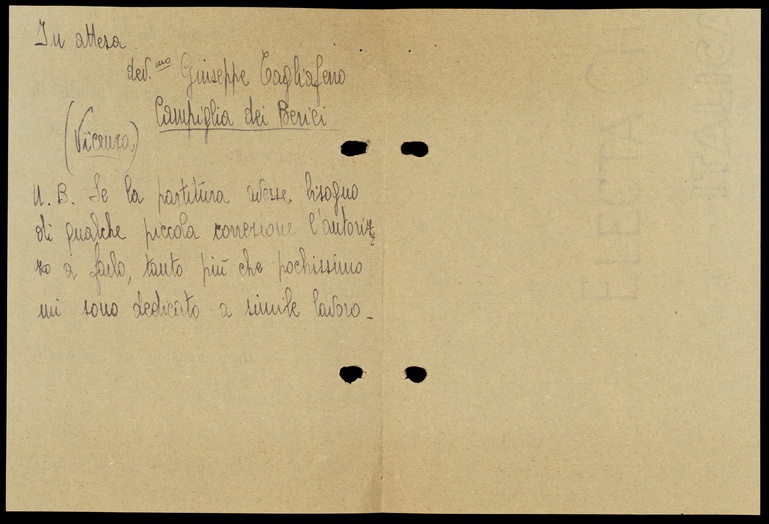 In attesa
dev.mo Giuseppe Tagliafeno
Campiglia dei Berici
(Vicenza)
N. B. Se la partitura avesse bisogno
di qualche piccola correzione l'autoriz
zo a farlo, tanto più che pochissimo
mi sono dedicato a simile lavoro_